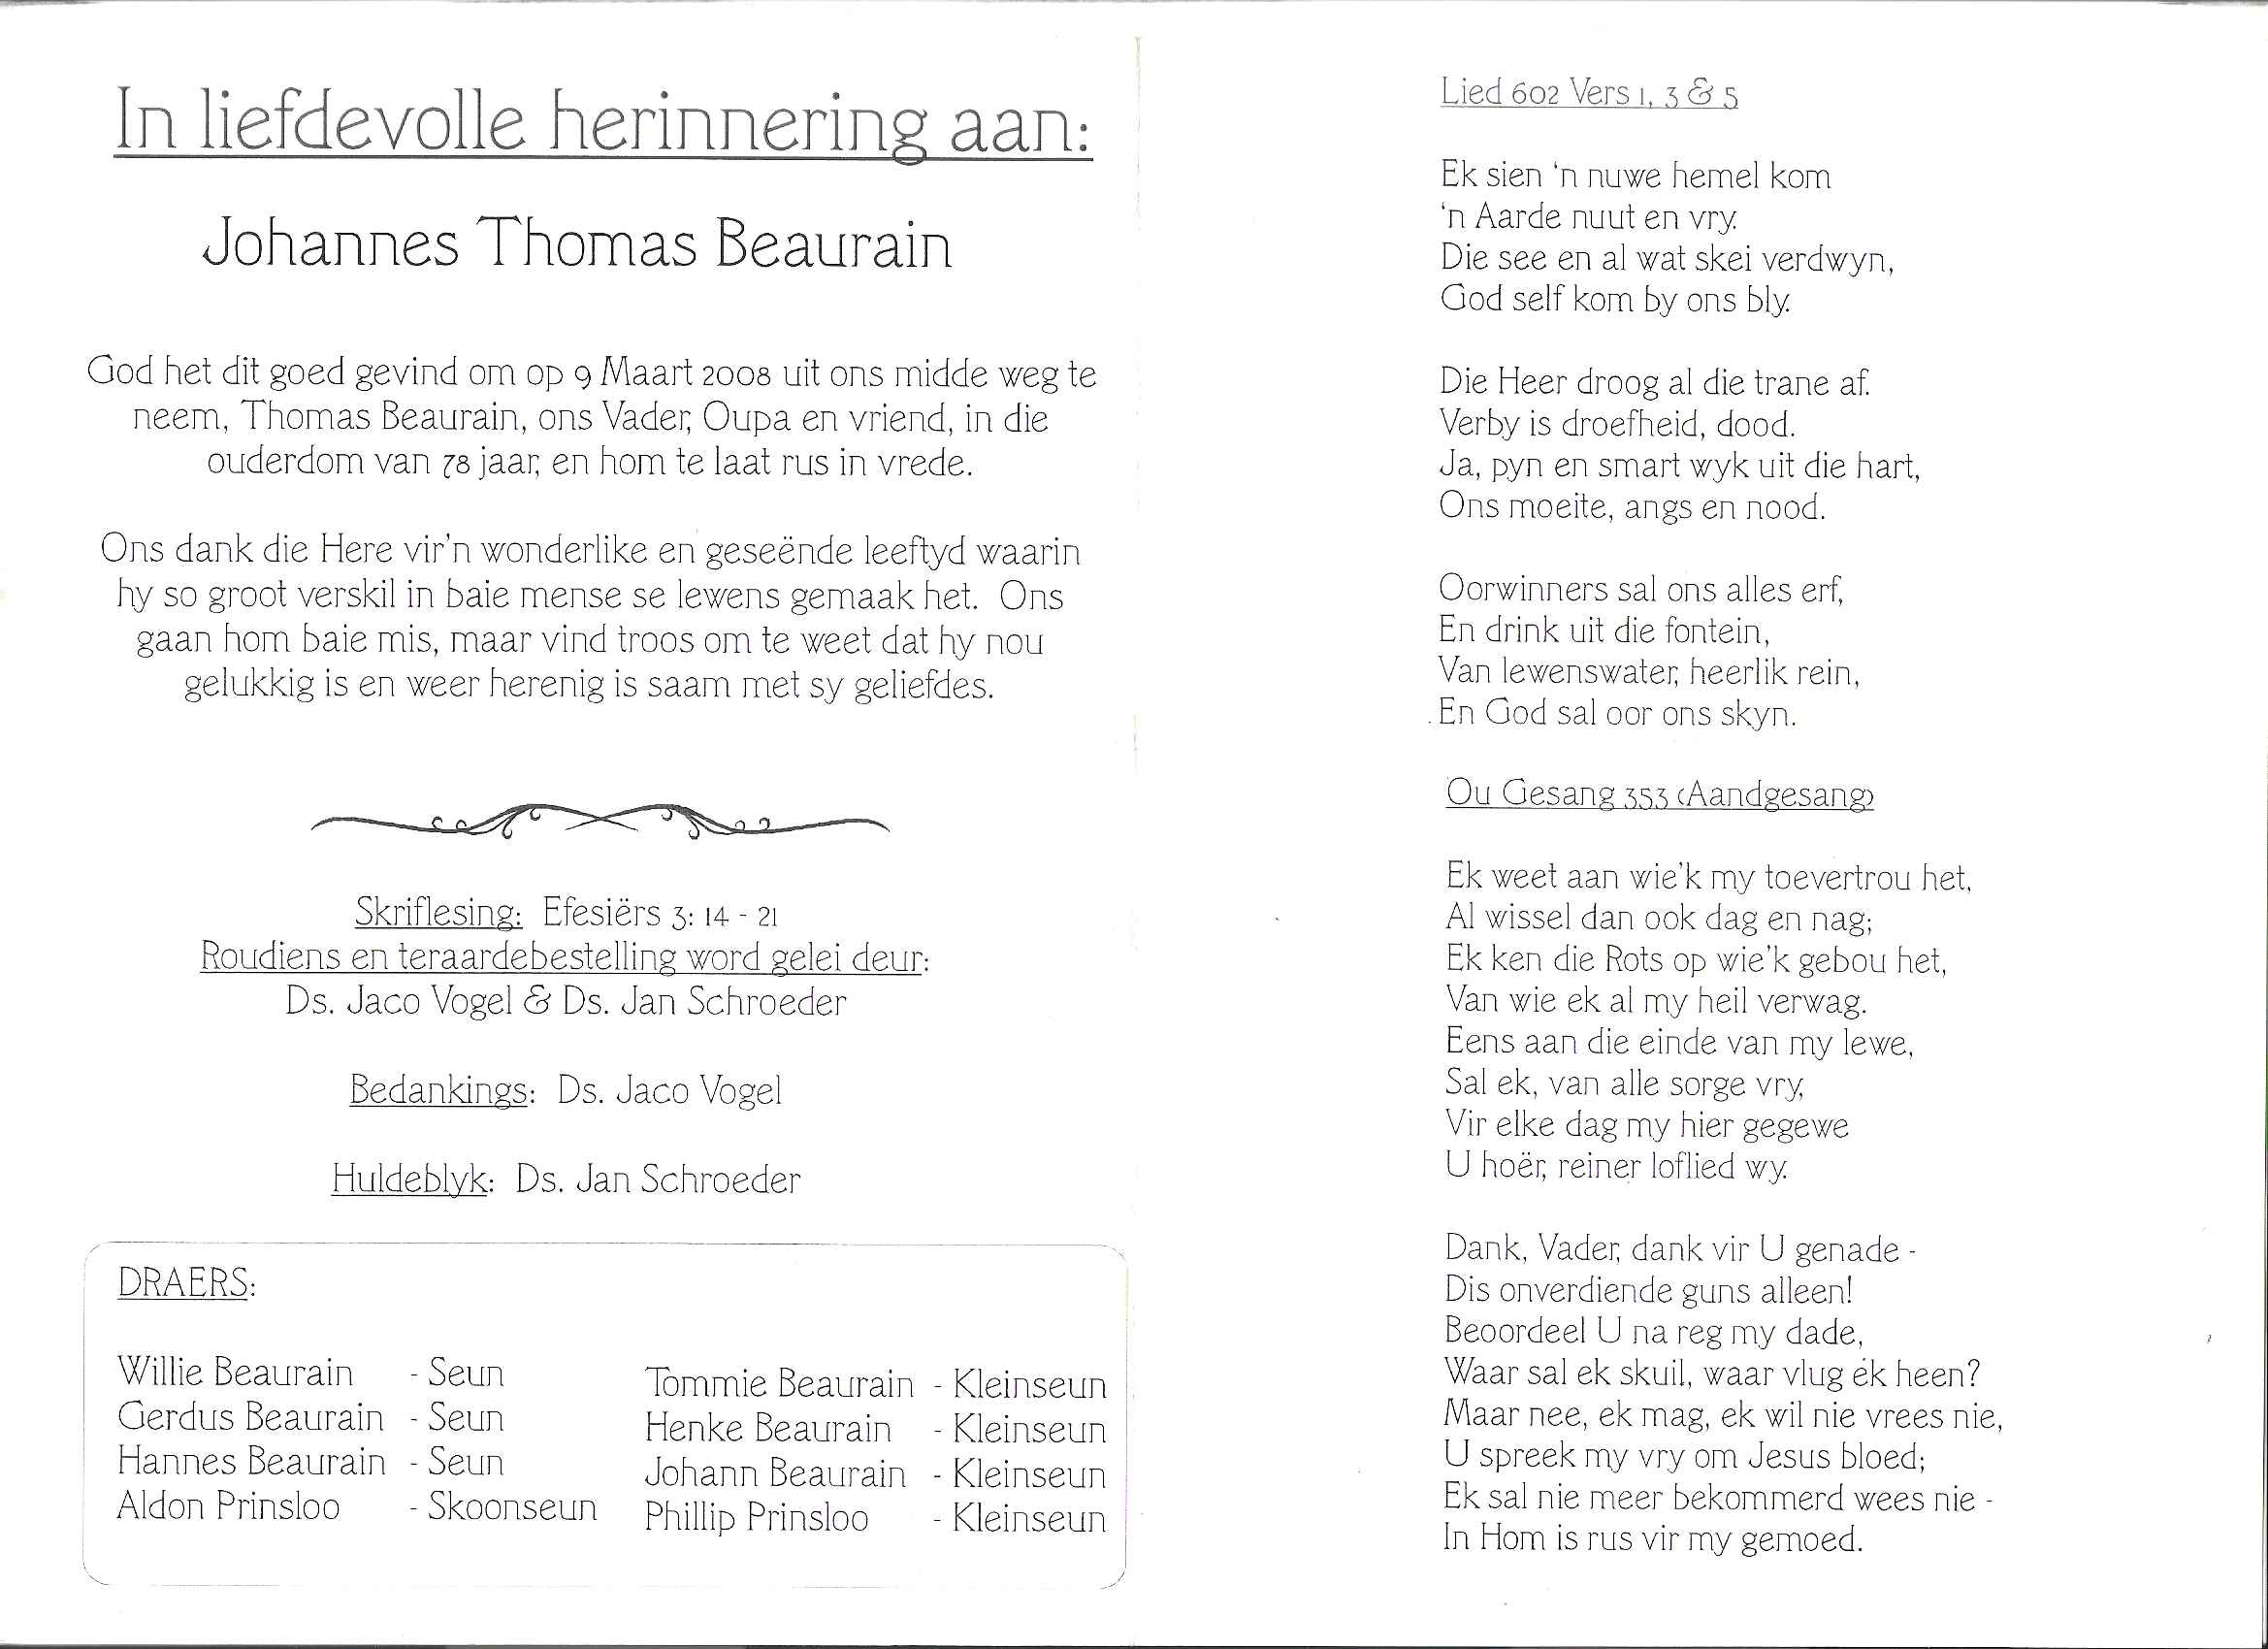 In liefdevolle herinnering aan:
Johannes Thomas Beaurain
God het dit goed gevind om op 9 Maart 2008 uit ons midde weg te
neem, Thomas Beaurain, ons Vader, Oupa en vriend, in die
ouderdom van 78 jaar, en hom te laat rus in vrede.
Ons dank die Here vir'n wonderlike en geseënde leeftyd waarin
hy so groot verskil in baie mense se lewens gemaak het. Ons
gaan hom baie mis, maar vind troos om te weet dat hy nou
gelukkig is en weer herenig is saam met sy geliefdes.
Skriflesing: Efesiërs 3: 14 - 21
Roudiens en teraardebestelling word gelei deur:
Ds. Jaco Vogel & Ds. Jan Schroeder
Bedankings: Ds. Jaco Vogel
Huldeblyk: Ds. Jan Schroeder
DRAERS:
Willie Beaurain - Seun
Gerdus Beaurain - Seun
Hannes Beaurain - Seun
Aldon Prinsloo - Skoonseun
Tommie Beaurain - Kleinseun
Henke Beaurain - Kleinseun
Johann Beaurain - Kleinseun
Phillip Prinsloo - Kleinseun
Lied 602 Vers 1, 3 & 5
Ek sien 'n nuwe hemel kom
'n Aarde nuut en vry.
Die see en al wat skei verdwyn,
God self kom by ons bly.
Die Heer droog al die trane af.
Verby is droefheid, dood.
Ja, pyn en smart wyk uit die hart,
Ons moeite, angs en nood.
Oorwinners sal ons alles erf,
En drink uit die fontein,
Van lewenswater, heerlik rein,
En God sal oor ons skyn.
Ou Gesang 353 (Aandgesang)
Ek weet aan wie'k my toevertrou het,
Al wissel dan ook dag en nag;
Ek ken die Rots op wie'k gebou het,
Van wie ek al my heil verwag.
Eens aan die einde van my lewe,
Sal ek, van alle sorge vry,
Vir elke dag my hier gegewe
U hoër, reiner loflied wy.
Dank, Vader, dank vir U genade -
Dis onverdiende guns alleen!
Beoordeel U na reg my dade,
Waar sal ek skuil, waar vlug ek heen?
Maar nee, ek mag, ek wil nie vrees nie,
U spreek my vry om Jesus bloed;
Ek sal nie meer bekommerd wees nie -
In Hom is rus vir my gemoed.